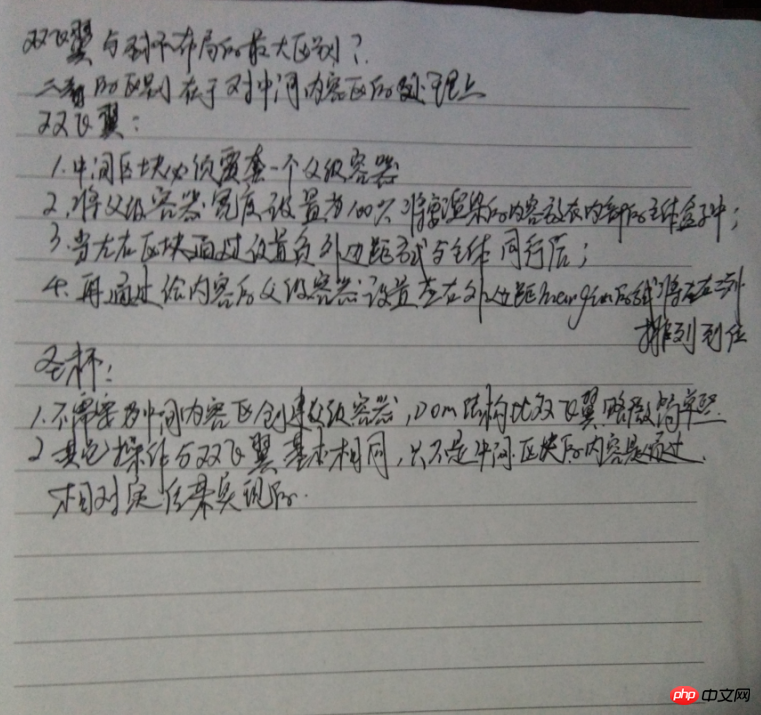 双飞翼与圣杯布局的最大区别?
二者的区别在于对中间内容区的处理上
双飞翼:
1.中间区块必须要套一个父级容器
2,将父级容器宽度设置为100% 将要渲染的内容放在内部的主体盒子中;
3.当左右区块通过设置负外边距方式与主体同行后;
4.再通过给内容的父级容器设置左右外边距margin的方式将左右二列
排列到位
圣杯:
1.不需要为中间内容区创建父级容器,Dom结构比双飞翼略微简单些.
2 其它操作与双飞翼基本相同,只不是中间区块的内容是通过
相对定位来实现的.
php 中文网